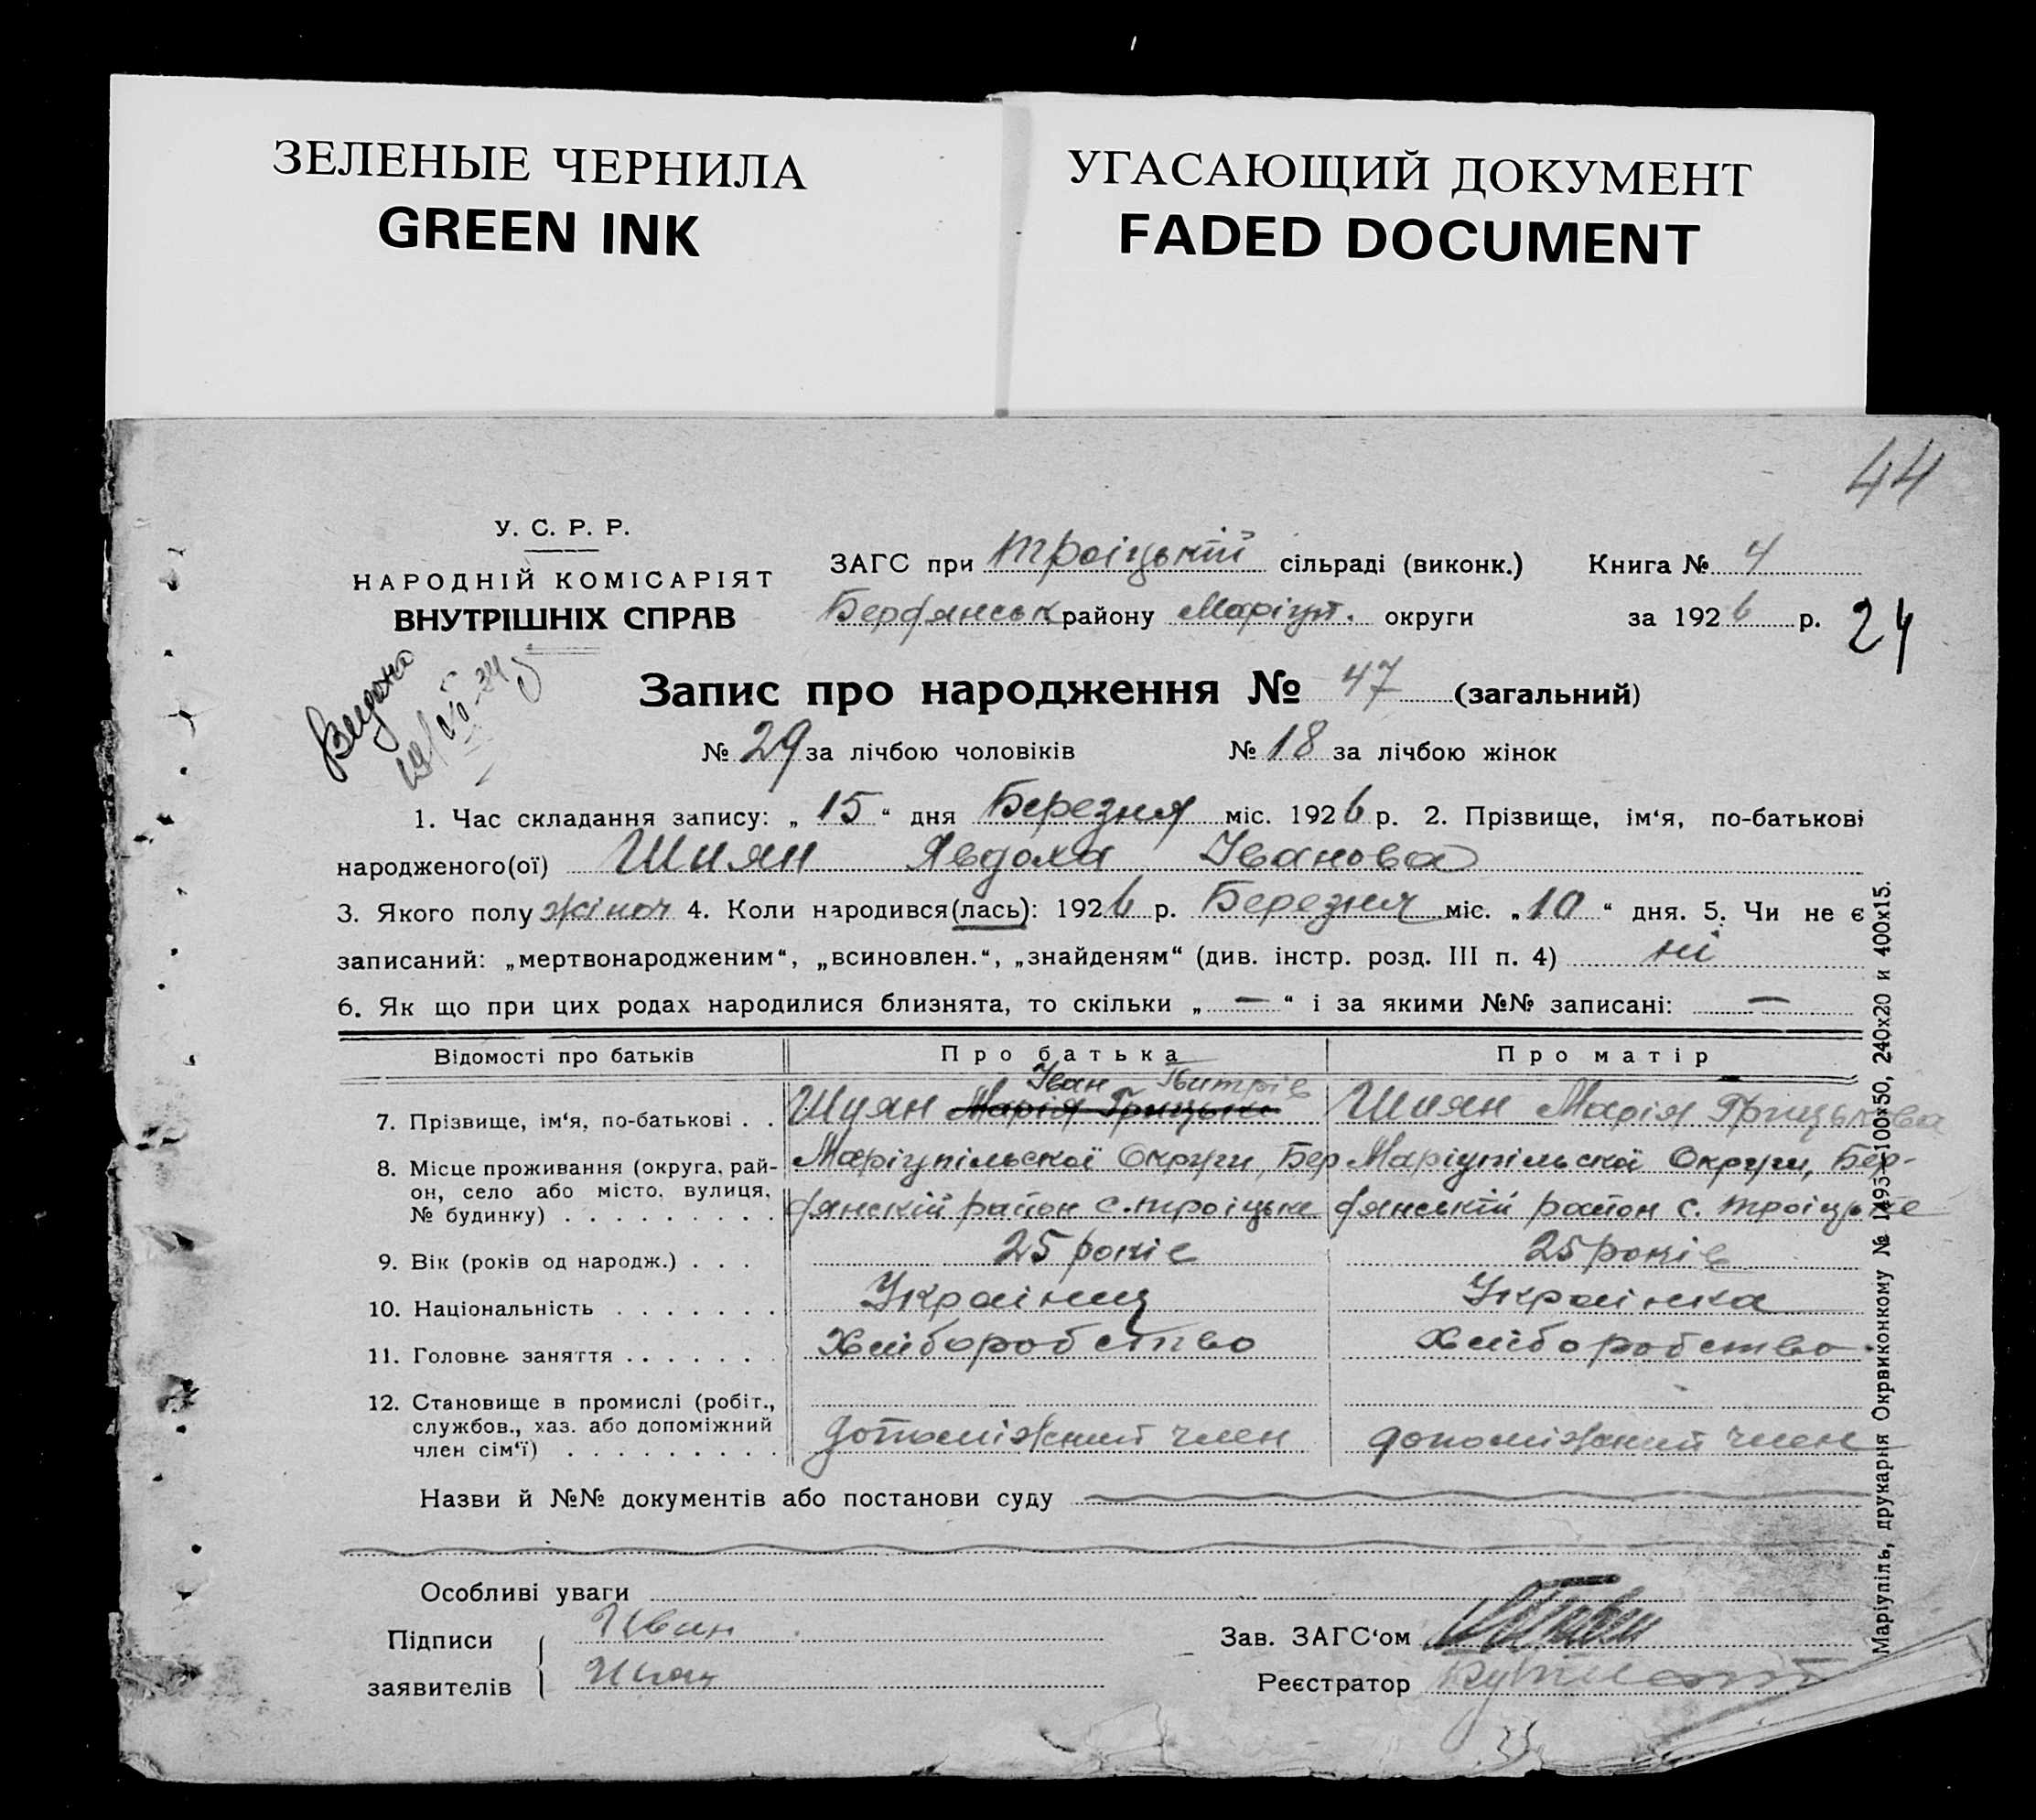 ЗЕЛЕНЫЕ ЧЕРНИЛА
GREEN INK
УГАСАЮЩИЙ ДОКУМЕНТ
FADED DOCUMENT
44
У. С. Р. Р.
НАРОДНІЙ КОМІСАРІЯТ
ВНУТРІШНІХ СПРАВ
ЗАГС при Троіцькій сільраді (виконк.) Книга № 4
Бердянськ району Маріуп. округи за 1926 р.
24
Видано
Запис про народження № 47 (загальний)
№ 29 за лічбою чоловіків № 18 за лічбою жінок
1. Час складання запису: „ 15 “ дня Березня міс. 1926 р. 2. Прізвище, ім‘я, по-батькові
народженого(ої) Шиян Явдоха Іванова
3. Якого полу жіноч 4. Коли народився(лась): 1926 р. Березня міс. „ 10 “ дня. 5. Чи не є
записаний: „мертвонародженим“, „всиновлен.“, „знайденям“ (див. інстр. розд. III п. 4) ні
6. Як що при цих родах народилися близнята, то скільки „ — “ і за якими №№ записані: —
Відомості про батьків Про батька Про матір
Іван
7. Прізвище, ім‘я, по-батькові . . Шиян Марія Грицьки Шиян Марія Грицькова
8. Місце проживання (округа, рай- Маріупільскої Округи, Бер Маріупільскоі Округи, Бер-
он, село або місто, вулиця, дянскій район с. Троіцьке дянській район с. Троіцьке
№ будинку) . . . . . . . . .
9. Вік (років од народж.) . . . 25 років 25 років
10. Національність . . . . . . . Украінец Украінка
11. Головне заняття . . . . . . . Хліборобство Хліборобство
12. Становище в промислі (робіт.,
службов., хаз. або допоміжний допоміжний член допоміжний член
член сім‘ї) . . . . . . . . .
Назви й №№ документів або постанови суду
Особливі уваги
Підписи Иван Зав. ЗАГС‘ом
заявителів Шиян Реєстратор
Маріупіль, друкарня Окрвиконкому № 1495—100×50, 240×20 и 400×15.